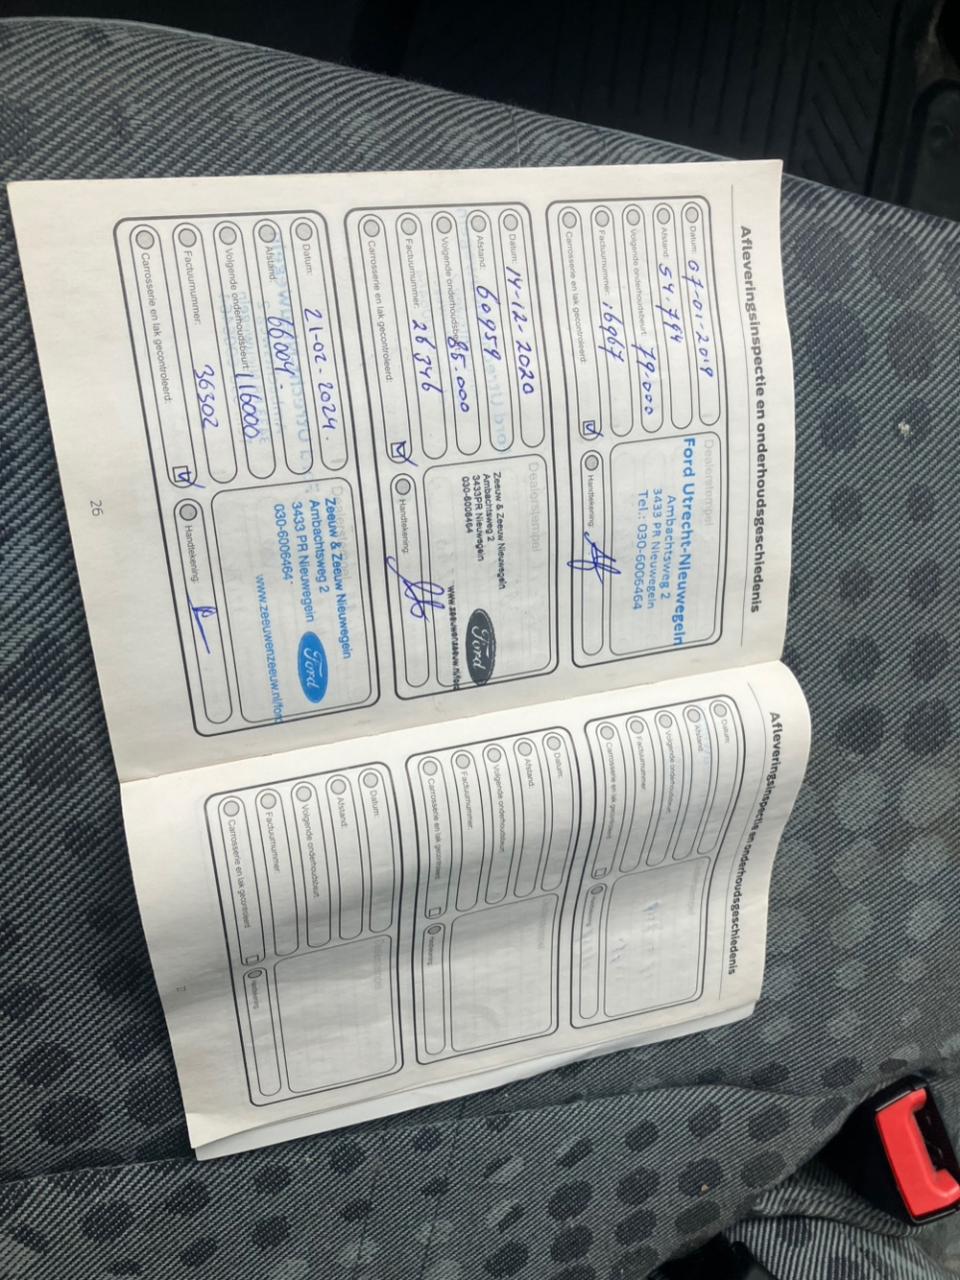 Afleveringsinspectie en onderhoudsgeschiedenis
Datum: 07-01-2019
Afstand: 54.794
Volgende onderhoudsbeurt: 79.000
Factuurnummer: 16967
Carrosserie en lak gecontroleerd:
Dealerstempel
Ford Utrecht-Nieuwegein
Ambachtsweg 2
3433 PR Nieuwegein
Tel.: 030-6006464
Handtekening:
Datum: 14-12-2020
Afstand: 60959
Volgende onderhoudsbeurt: 85.000
Factuurnummer: 26346
Carrosserie en lak gecontroleerd:
Dealerstempel
Zeeuw & Zeeuw Nieuwegein
Ambachtsweg 2
3433PR Nieuwegein
030-6006464
Ford
www.zeeuwenzeeuw.nl/ford
Handtekening:
Datum: 21-02-2024.
Afstand: 66004.
Volgende onderhoudsbeurt: 116000.
Factuurnummer: 36302
Carrosserie en lak gecontroleerd:
Zeeuw & Zeeuw Nieuwegein
Ambachtsweg 2
3433 PR Nieuwegein
030-6006464
Ford
www.zeeuwenzeeuw.nl/ford
Handtekening:
26
Afleveringsinspectie en onderhoudsgeschiedenis
Datum:
Afstand:
Volgende onderhoudsbeurt:
Factuurnummer:
Carrosserie en lak gecontroleerd:
Datum:
Afstand:
Volgende onderhoudsbeurt:
Factuurnummer:
Carrosserie en lak gecontroleerd:
Handtekening:
Datum:
Afstand:
Volgende onderhoudsbeurt:
Factuurnummer:
Carrosserie en lak gecontroleerd:
Handtekening: